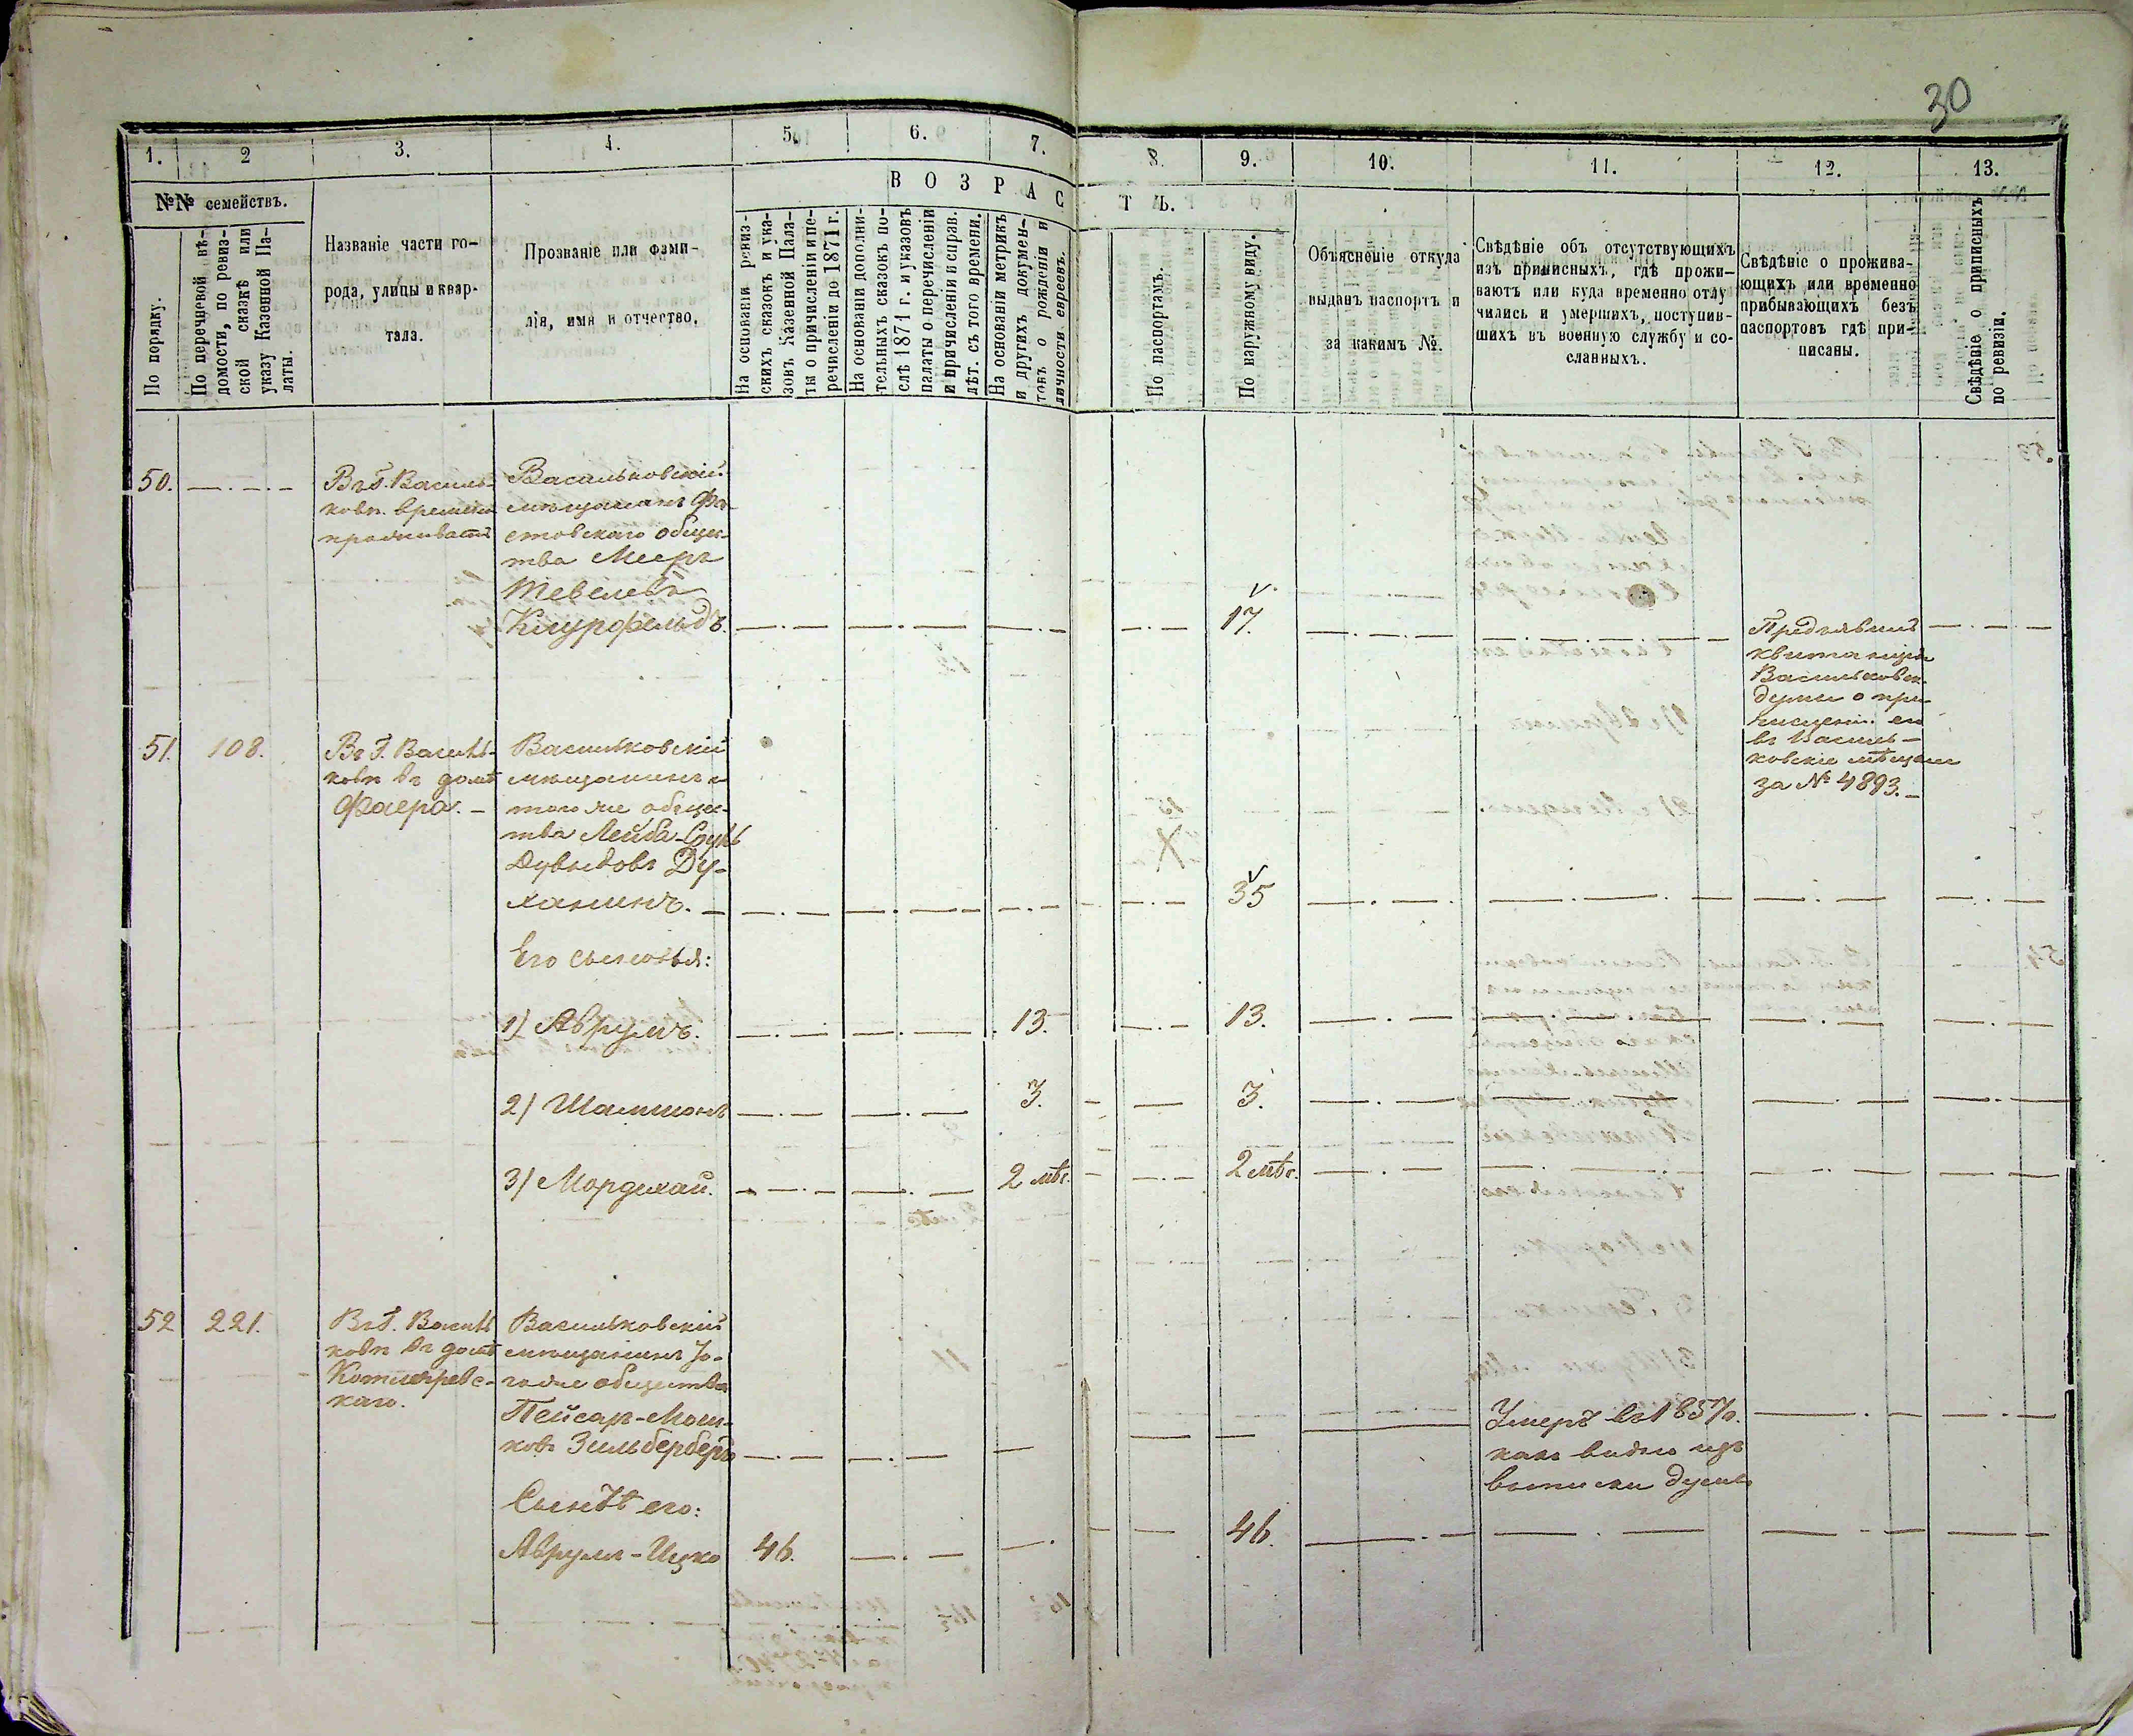 30
1. 2 3. 4. 5. 6. 7. 8. 9. 10. 11. 12. 13.
№№ семействъ.
В О З Р А С Т Ъ.
По порядку.
По перечневой вѣ-
домости, по ревиз-
ской сказкѣ или
указу Казенной Па-
латы.
Названіе части го-
рода, улицы и квар-
тала.
Прозваніе или фами-
лія, имя и отчество.
На основаніи ревиз-
скихъ сказокъ и ука-
зовъ Казенной Пала-
ты о причисленіи и пе-
речисленіи до 1871 г.
На основаніи дополни-
тельныхъ сказокъ по-
слѣ 1871 г. и указовъ
палаты о перечисленіи
и причисленіи и справ.
лѣт. съ того времени.
На основаніи метрикъ
и другихъ докумен-
товъ о рожденіи и
личности евреевъ.
По паспортамъ.
По наружному виду.
Объясненіе откуда
выданъ паспортъ и
за какимъ №.
Свѣдѣніе объ отсутствующихъ
изъ приписныхъ, гдѣ прожи-
ваютъ или куда временно отлу
чились и умершихъ, поступив-
шихъ въ военную службу и со-
сланныхъ.
Свѣдѣніе о прожива-
ющихъ или временно
прибывающихъ безъ
паспортовъ гдѣ при-
писаны.
Свѣдѣніе о приписныхъ
по ревизіи.
50.
Въ г. Василь-
ковѣ временно
проживаетъ
Васильковскій
мѣщанинъ Фа-
стовскаго общес-
тва Мееръ
Тевелевъ
17.
Предъявилъ
квитанцію
Васильковск.
думы о при-
численіи его
въ Василь-
ковскіе мѣщане
за № 4893.
51. 108.
Въ г. Василь-
ковѣ въ домѣ
Фаера.
Васильковскій
мѣщанинъ
того же общес-
тва Лейба-Сруль
Дувидовъ Ду-
ханинъ.
35
Его сыновья:
1) Аврумъ. 13. 13.
2) Шамшонъ 3. 3.
3) Мордихай. 2 мѣс. 2 мѣс.
52 221.
Въ г. Василь
ковѣ въ домѣ
Котляревс-
каго.
Васильковскій
мѣщанинъ то-
го же общества
Пейсах-Мош-
ковъ Зильберберъ
Умеръ въ 1857 г.
какъ видно изъ
выписки думы
Сынъ его:
Аврумъ-Ицко 46. 46.